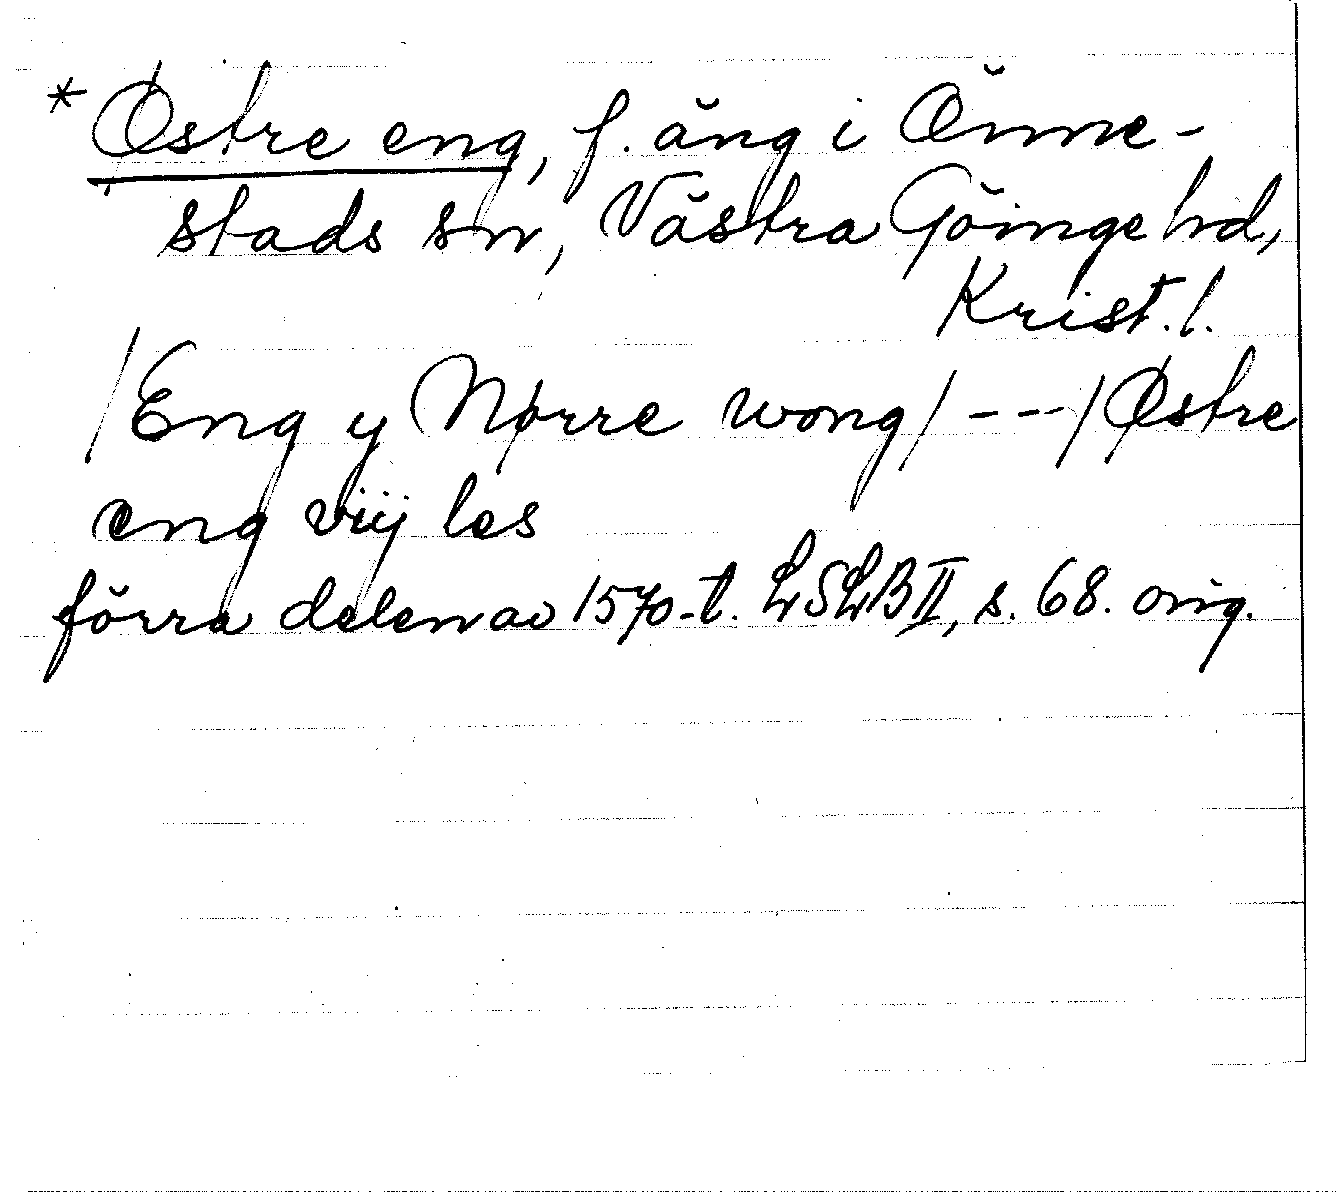 * Østre eng, f. äng i Önne-
stads sn, Västra Göinge hd,
Krist. l.
/Eng y Nørre wong/ ---/Østre
eng viij les
förra delen av 1570-t. LSLB II, s. 68. orig.